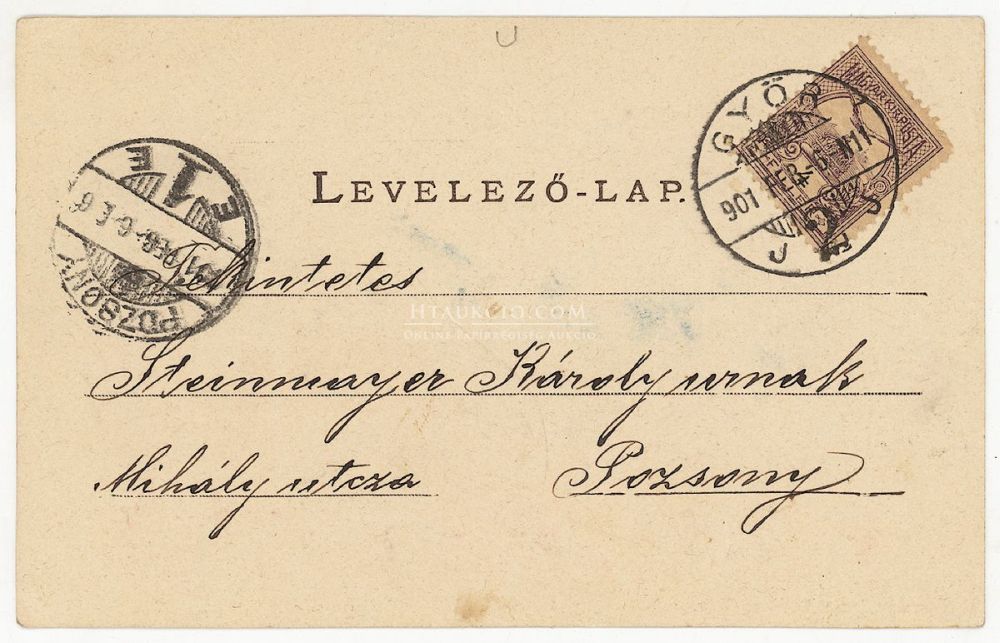 LEVELEZŐ-LAP.
GYŐR
901 FEBR. 6.
MAGYAR KIR. POSTA
POZSONY
E 1 E
Tekintetes
HTAUKCIO.COM
ONLINE PAPÍRRÉGISÉG AUKCIÓ
Steinmayer Károly urnak
Mihály utcza Pozsony